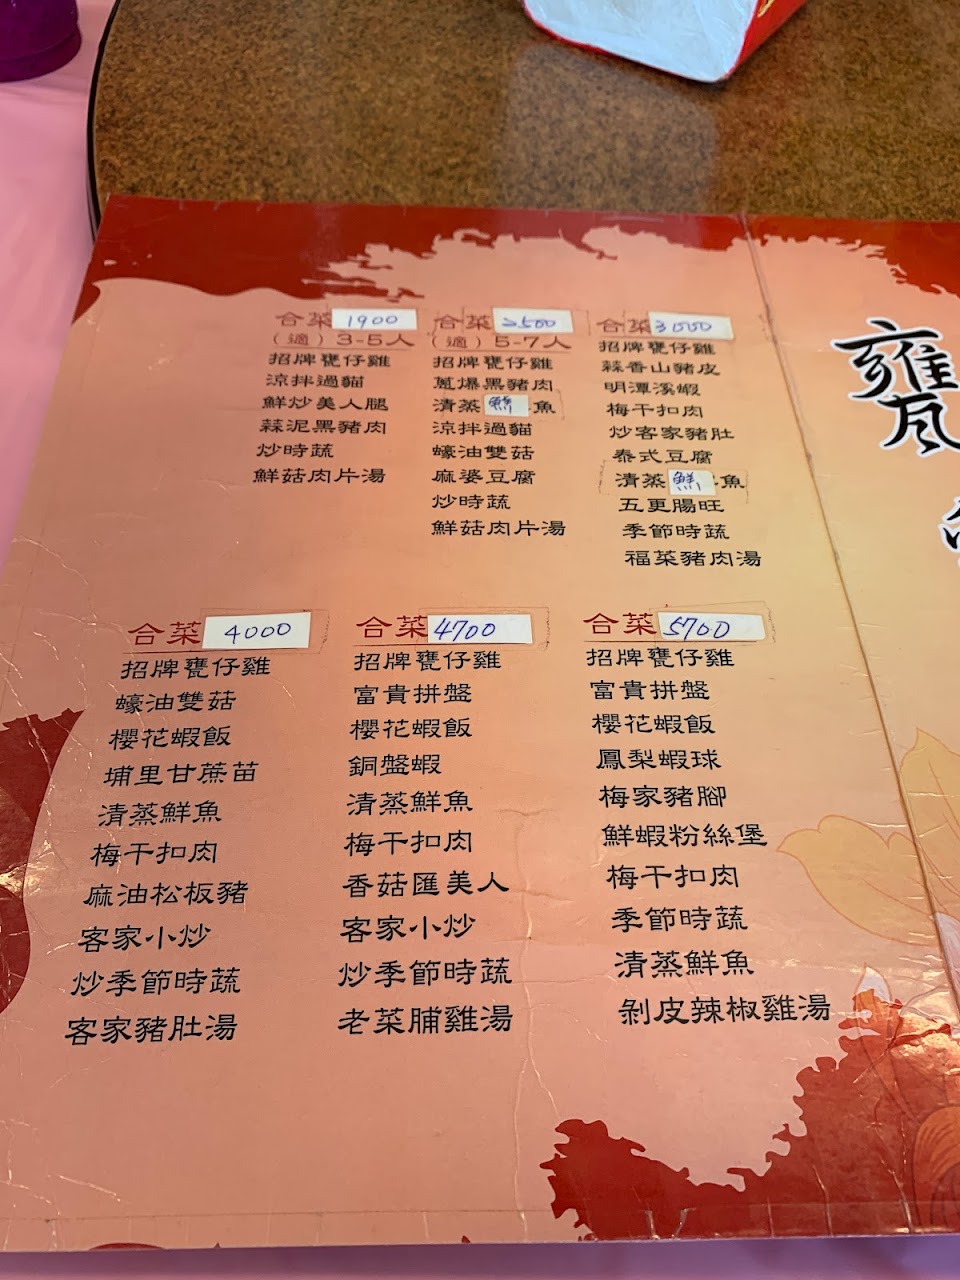 合菜 1900
(適) 3-5人
招牌甕仔雞
涼拌過貓
鮮炒美人腿
蒜泥黑豬肉
炒時蔬
鮮菇肉片湯
合菜 2500
(適) 5-7人
招牌甕仔雞
蔥爆黑豬肉
清蒸鮮魚
涼拌過貓
蠔油雙菇
麻婆豆腐
炒時蔬
鮮菇肉片湯
合菜 3000
招牌甕仔雞
蒜香山豬皮
明潭溪蝦
梅干扣肉
炒客家豬肚
泰式豆腐
清蒸鮮魚
五更腸旺
季節時蔬
福菜豬肉湯
合菜 4000
招牌甕仔雞
蠔油雙菇
櫻花蝦飯
埔里甘蔗苗
清蒸鮮魚
梅干扣肉
麻油松板豬
客家小炒
炒季節時蔬
客家豬肚湯
合菜 4700
招牌甕仔雞
富貴拼盤
櫻花蝦飯
銅盤蝦
清蒸鮮魚
梅干扣肉
香菇匯美人
客家小炒
炒季節時蔬
老菜脯雞湯
合菜 5700
招牌甕仔雞
富貴拼盤
櫻花蝦飯
鳳梨蝦球
梅家豬腳
鮮蝦粉絲堡
梅干扣肉
季節時蔬
清蒸鮮魚
剝皮辣椒雞湯
甕